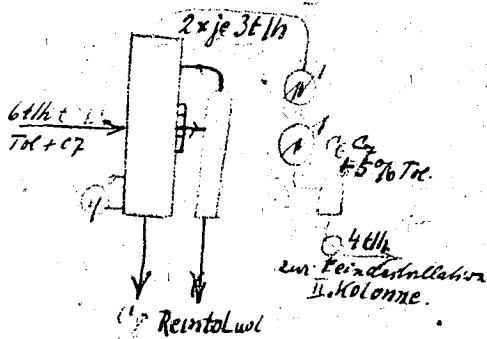 2 x je 3 t/h
6 t/h
Tol + C7
C7
+ 5% Tol.
4 t/h
zur Feindestillation
II. Kolonne.
Reintoluol